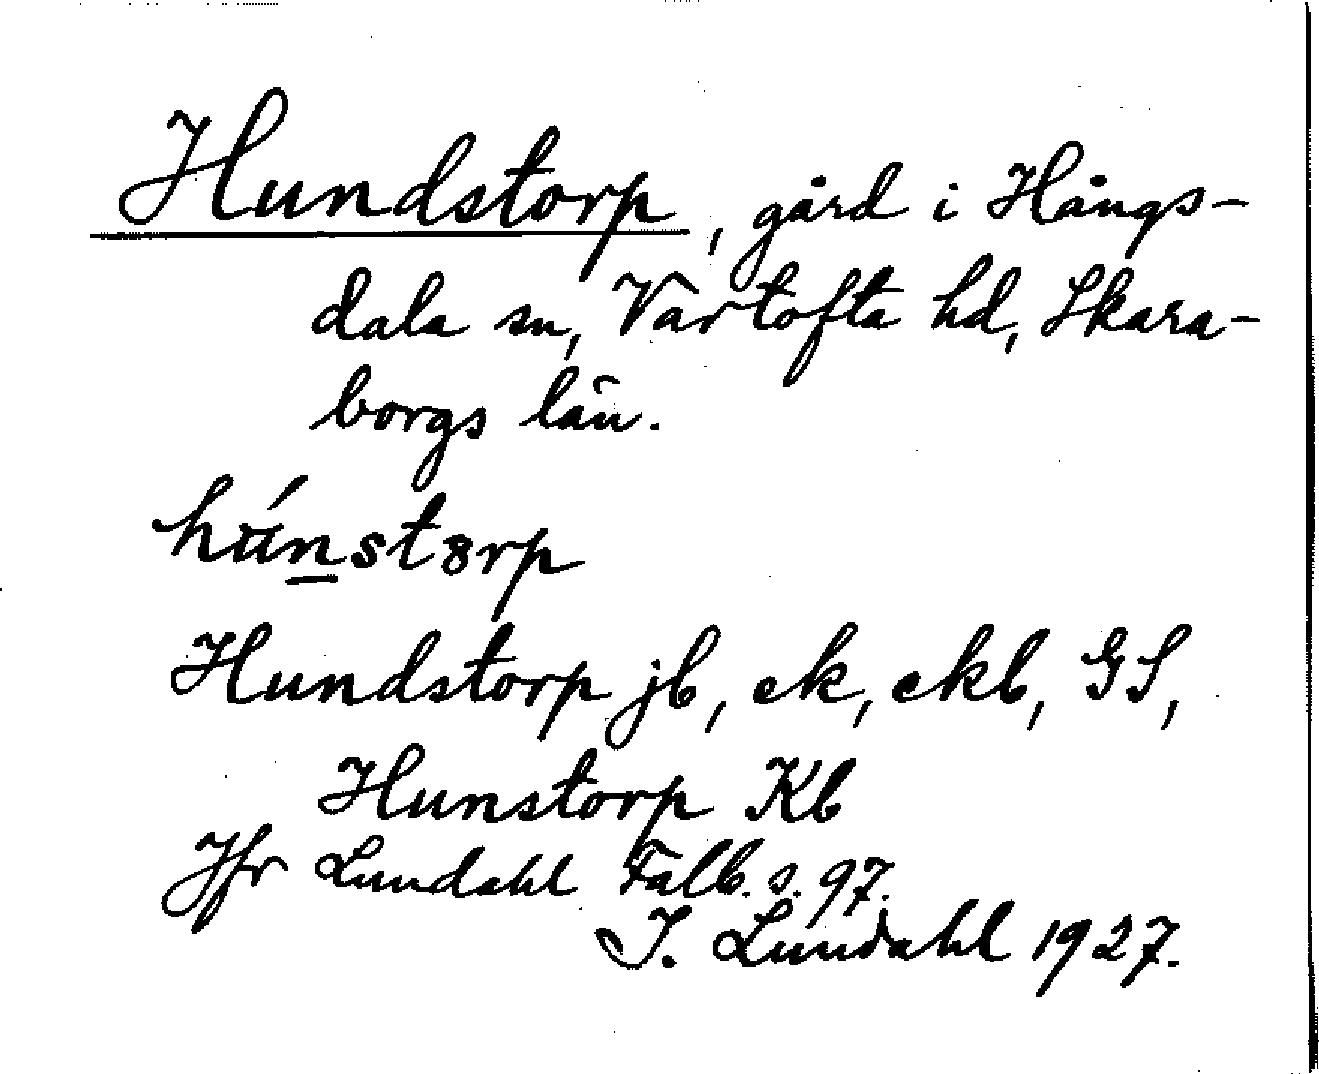 Hundstorp, gård i Hångs-
dala sn, Vartofta hd, Skara-
borgs län.
hǘnstorp
Hundstorp jb, ek, ekb, GS,
Hunstorp Kb
Jfr Lundahl Falb. s. 97.
I. Lundahl 1927.